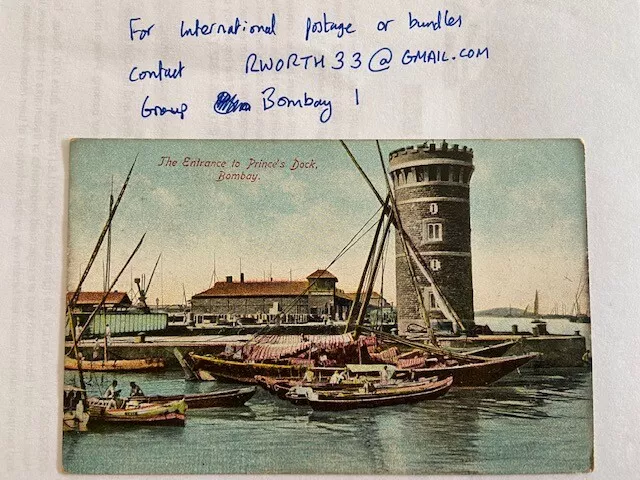 For International postage or bundles
contact RWORTH33@GMAIL.COM
Group Bombay 1
The Entrance to Prince's Dock,
Bombay.